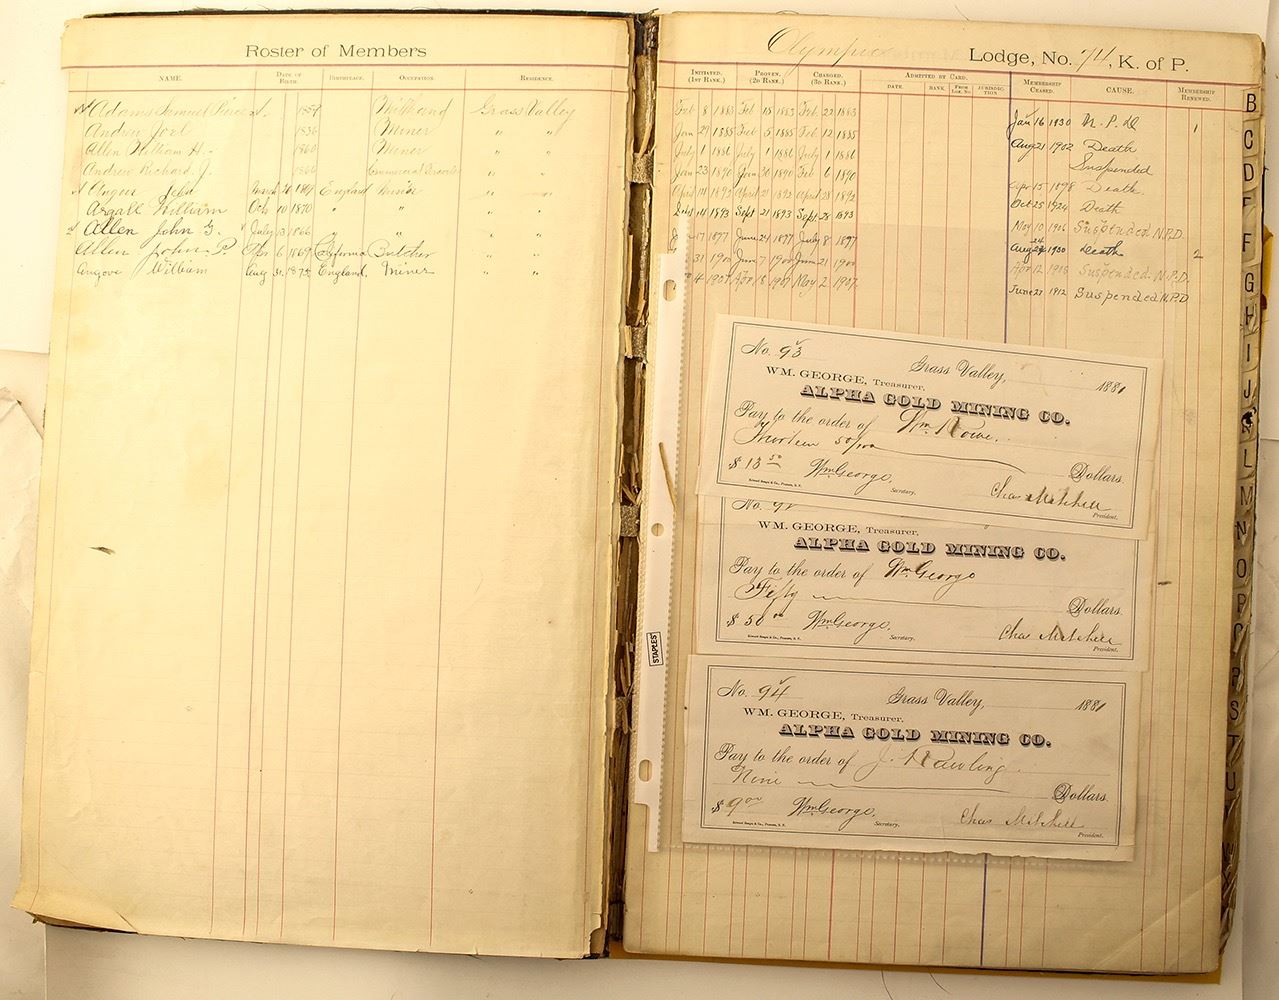 Roster of Members
NAME. DATE OF BIRTH. BIRTHPLACE. OCCUPATION. RESIDENCE.
Adams Samuel 1859 Millhand Grass Valley
Andrew Joel 1856 Miner " "
Allen William H. 1860 Miner " "
Andrew Richard J. 1860 " "
Angove John 20 England Miner " "
Argall William Oct 10 1870 " " " "
Allen John G. July 13 1866 " " " "
Allen John P. 6 1869 California Butcher " "
Angove William Aug 31 1872 England. Miner " "
Olympic Lodge, No. 74, K. of P.
INITIATED. (1ST RANK.) PROVEN. (2D RANK.) CHARGED. (3D RANK.) ADMITTED BY CARD. DATE. RANK. FROM LOC. NO. JURISDICTION. MEMBERSHIP CEASED. CAUSE. MEMBERSHIP RENEWED.
Feb 8 1883 Feb 15 1883 Feb. 22 1883
Jan 29 1885 Feb 5 1885 Feb 12 1885 Jan 16 1930 N. P. D 1
July 1 1886 July 1 1886 July 1 1886 Aug 21 1902 Death
Jan 23 1890 Jan 30 1890 Feb 1890 Suspended
April 14 1892 April 21 1892 April 28 1892 Apr 15 1898 Death.
Sept 14 1893 Sept 21 1893 Sept 28 1893 Oct 25 1924 Death
17 1897 June 24 1897 July 8 1897 May 10 1906 Suspended. N.P.D.
31 1900 June 7 1900 June 21 1900 Aug 24 1930 Death 2
4 1907 Apr 18 1907 May 2 1907 Apr 12 Suspended. N.P.D.
June 27 1912 Suspended N.P.D
No. 93 Grass Valley, 1881
WM. GEORGE, Treasurer,
ALPHA GOLD MINING CO.
Pay to the order of Wm. Rowe.
Thirteen 50/100 Dollars.
$ 13 50 Wm George, Secretary. Chas Mitchell President.
No. 92
WM. GEORGE, Treasurer,
ALPHA GOLD MINING CO.
Pay to the order of Wm. George
Fifty Dollars.
$ 50 00 Wm George, Secretary. Chas Mitchell President.
No. 94 Grass Valley, 1881
WM. GEORGE, Treasurer,
ALPHA GOLD MINING CO.
Pay to the order of J. Rawling
Nine Dollars.
$ 9 00 Wm George, Secretary. Chas Mitchell President.
STAPLES
B
C
D
F
G
H
I
J
L
M
N
O
P
S
T
U